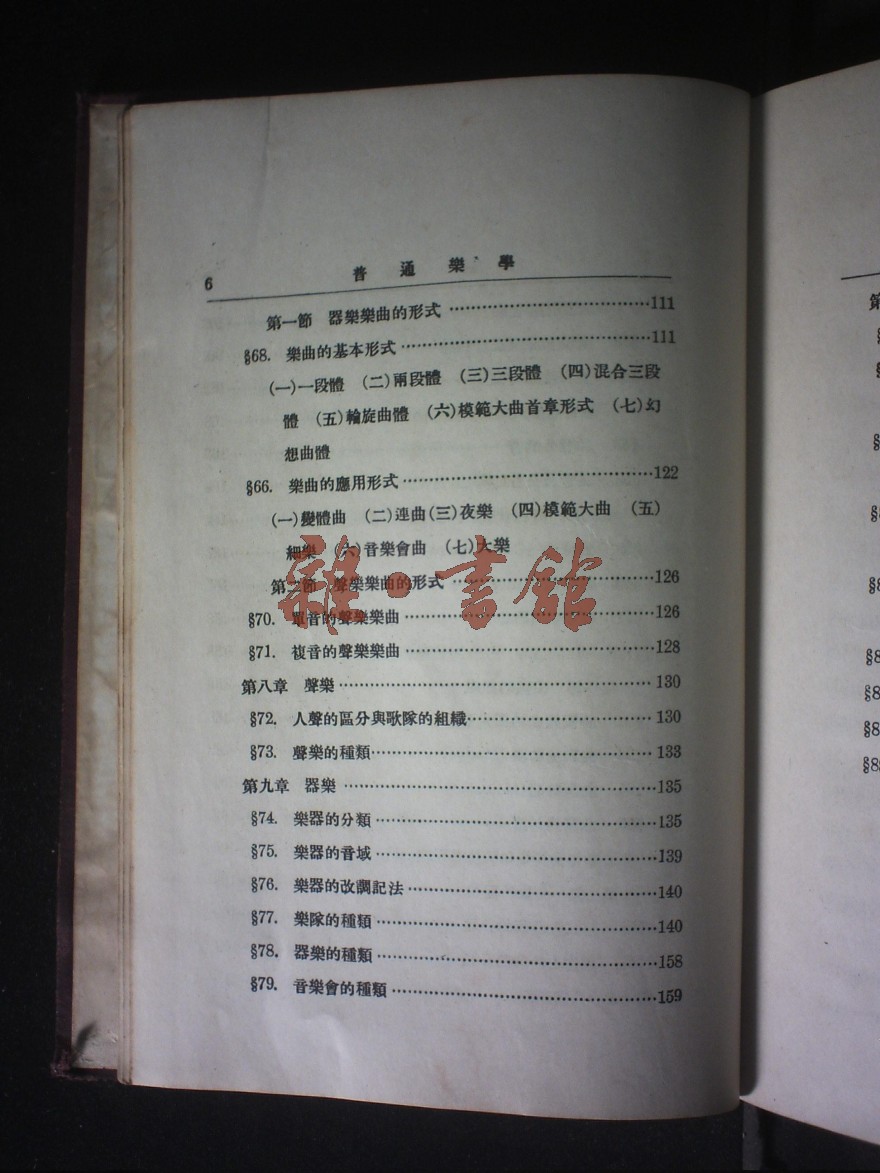 6 普通樂學
第一節 器樂樂曲的形式……111
§68. 樂曲的基本形式……111
(一)一段體 (二)兩段體 (三)三段體 (四)混合三段
體 (五)輪旋曲體 (六)模範大曲首章形式 (七)幻
想曲體
§66. 樂曲的應用形式……122
(一)變體曲 (二)連曲(三)夜樂 (四)模範大曲 (五)
細樂 (六)音樂會曲 (七)大樂
第二節 聲樂樂曲的形式……126
§70. 單音的聲樂樂曲……126
§71. 複音的聲樂樂曲……128
第八章 聲樂……130
§72. 人聲的區分與歌隊的組織……130
§73. 聲樂的種類……133
第九章 器樂……135
§74. 樂器的分類……135
§75. 樂器的音域……139
§76. 樂器的改調記法……140
§77. 樂隊的種類……140
§78. 器樂的種類……158
§79. 音樂會的種類……159
雜·書館
第
§
§
§
§
§8
§8
§8
§8
§8